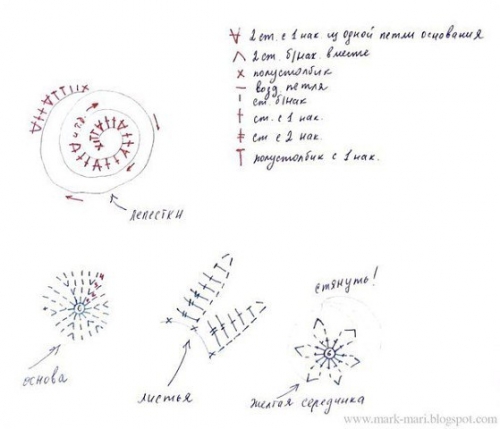 2 ст. с 1 нак из одной петли основания
2 ст. б/нак. вместе
полустолбик
возд. петля
ст. б/нак
ст. с 1 нак.
ст с 2 нак.
полустолбик с 1 нак.
и т.д.
лепестки
стянуть!
6
6
основа
листья
желтая серединка
www.mark-mari.blogspot.com